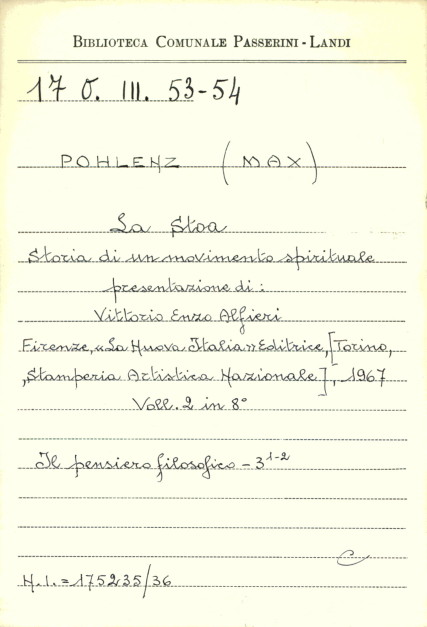 BIBLIOTECA COMUNALE PASSERINI - LANDI
17 O. III. 53-54
POHLENZ (MAX)
La Stoa
Storia di un movimento spirituale
presentazione di:
Vittorio Enzo Alfieri
Firenze, «La Nuova Italia» Editrice, [Torino,
Stamperia Artistica Nazionale], 1967
Voll. 2 in 8°
Il pensiero filosofico - 3¹⁻²
C
N.I. = 175235/36